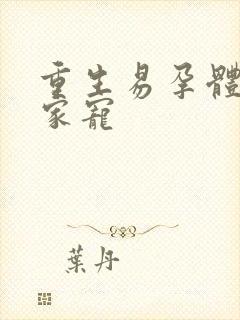 重生易孕體
家寵
葉丹